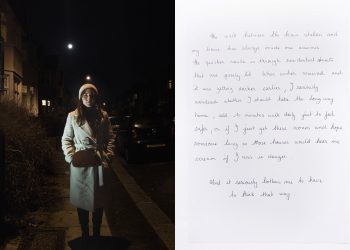 The walk between the train station and
my house has always made me nervous.
The quickest route is through residential streets
that are poorly lit. When winter arrived and
it was getting darker earlier, I seriously
considered whether I should take the long way
home, add 10 minutes walk daily just to feel
safer, or if I just get there sooner and hope
someone living in those houses would hear me
scream if I was in danger.
And it seriously bothers me to have
to think that way.